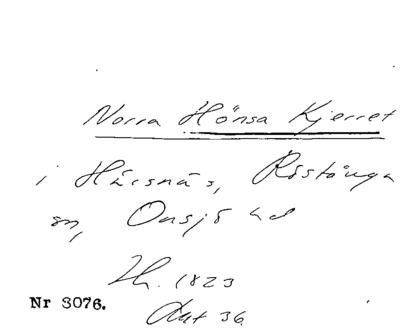 Norra Hönsa Kjerret
i Härsnäs, Röstånga
sn, Onsjö hd
Th. 1823
Nr 3076.
Aut 36.